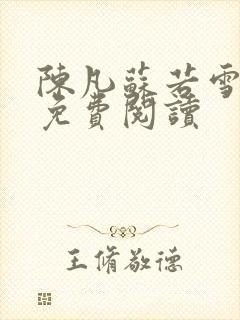 陳凡蘇若雪
免費閱讀
王脩敬德